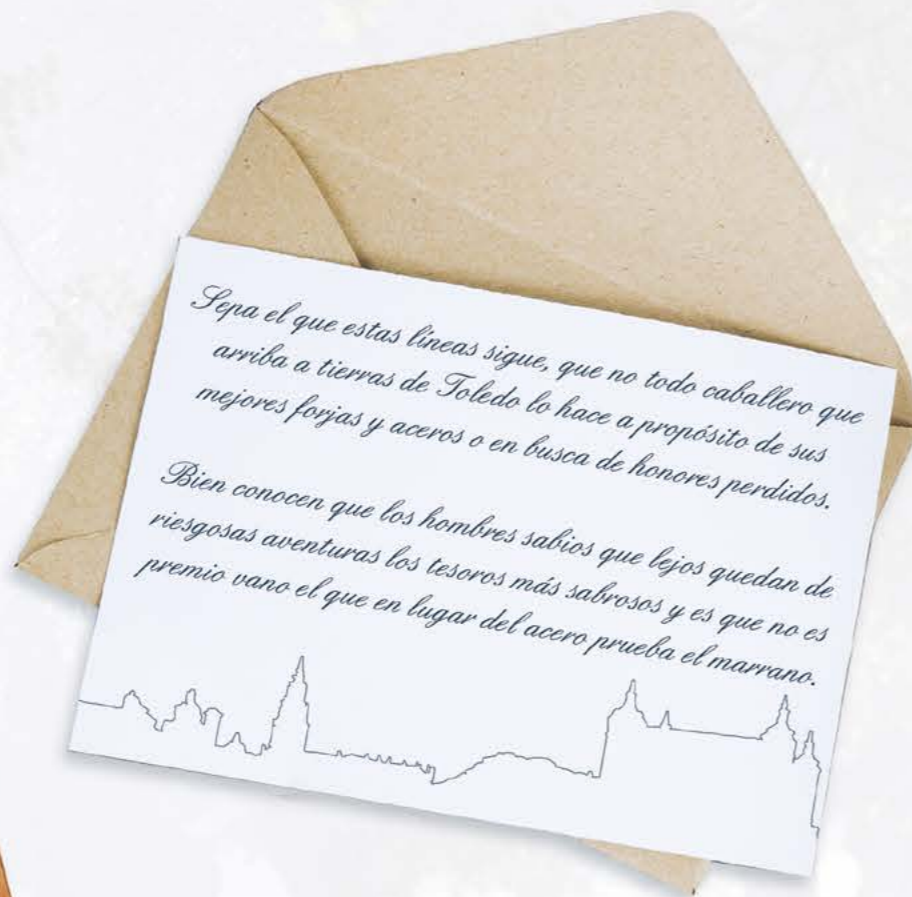 Sepa el que estas líneas sigue, que no todo caballero que
arriba a tierras de Toledo lo hace a propósito de sus
mejores forjas y aceros o en busca de honores perdidos.
Bien conocen que los hombres sabios que lejos quedan de
riesgosas aventuras los tesoros más sabrosos y es que no es
premio vano el que en lugar del acero prueba el marrano.